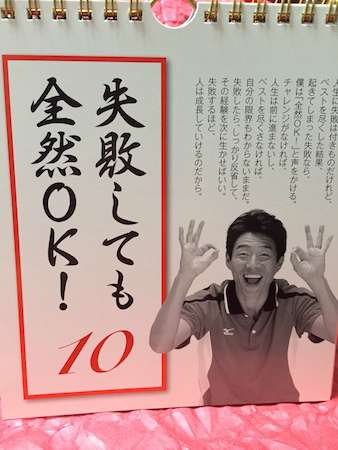 人生に失敗は付きものだけれど、
ベストを尽くした結果
起きてしまった失敗なら、
僕は「全然OK!」と声をかける。
チャレンジがなければ、
人生は前に進まないし、
ベストを尽くさなければ、
自分の限界もわからないままだ。
失敗したら、しっかり反省して、
その経験を次に生かせばいい。
失敗するほど、
人は成長していけるのだから。
失敗しても
全然OK!
10